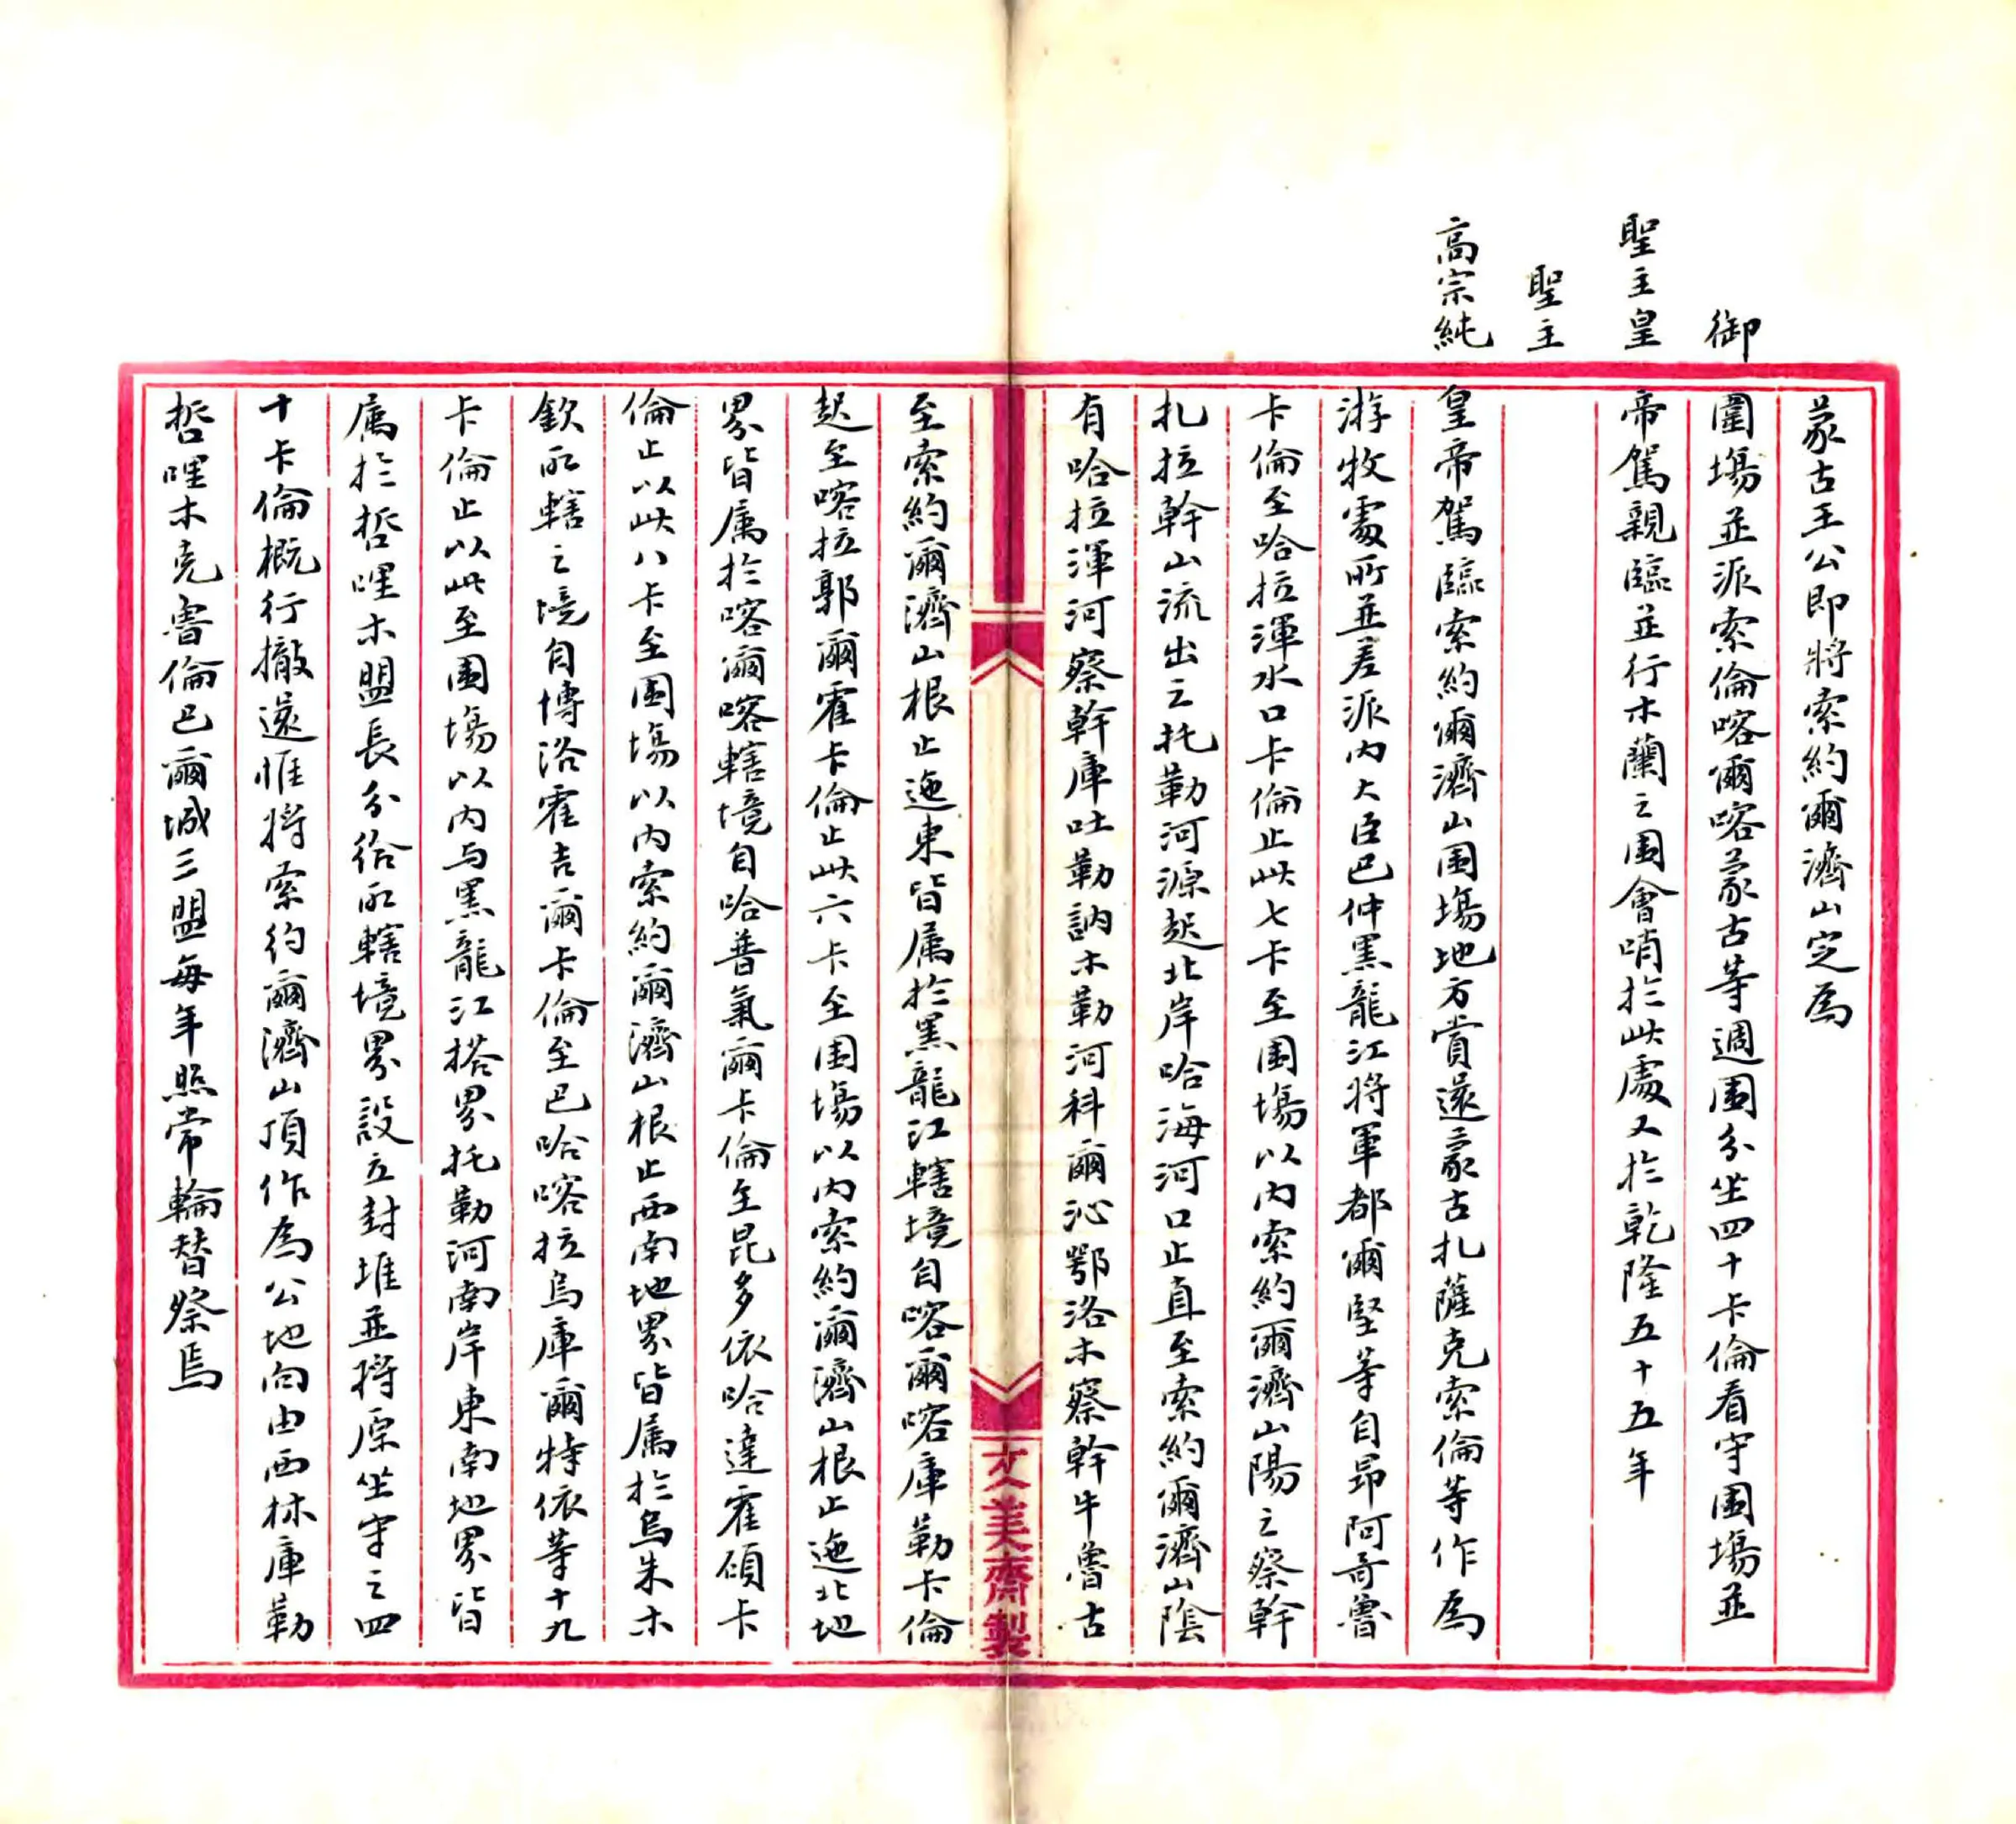 蒙古王公即將索約爾濟山定為
御圍場並派索倫喀爾喀蒙古等週圍分坐四十卡倫看守圍場並
聖主皇帝駕親臨並行木蘭之圍會哨於此處又於乾隆五十五年
聖主
高宗純皇帝駕臨索約爾濟山圍場地方賞還蒙古扎薩克索倫等作為
游牧處所並差派內大臣巴仲黑龍江將軍都爾堅等自昂阿哥魯
卡倫至哈拉渾水口卡倫止此七卡至圍場以內索約爾濟山陽之察幹
扎拉幹山流出之托勒河源起北岸哈海河口止直至索約爾濟山陰
有哈拉渾河察幹庫吐勒訥木勒河科爾沁鄂洛木察幹牛魯古
至索約爾濟山根止迤東皆属於黑龍江轄境自喀爾喀庫勒卡倫
起至喀拉郭爾霍卡倫止此六卡至圍場以內索約爾濟山根止迤北地
界皆属於喀爾喀轄境自哈普氣爾卡倫至昆多依哈達霍碩卡
倫止以此八卡至圍場以內索約爾濟山根止西南地界皆属於烏朱木
欽所轄之境自博洛霍吉爾卡倫至巴哈喀拉烏庫爾特依等十九
卡倫止以此至圍場以內与黑龍江搭界托勒河南岸東南地界皆
属於哲哩木盟長分給所轄境界設立封堆並將原坐守之四
十卡倫概行撤還惟將索約爾濟山頂作為公地向由西林庫勒
哲哩木克魯倫巴爾城三盟每年照常輪替祭焉
文美齋製